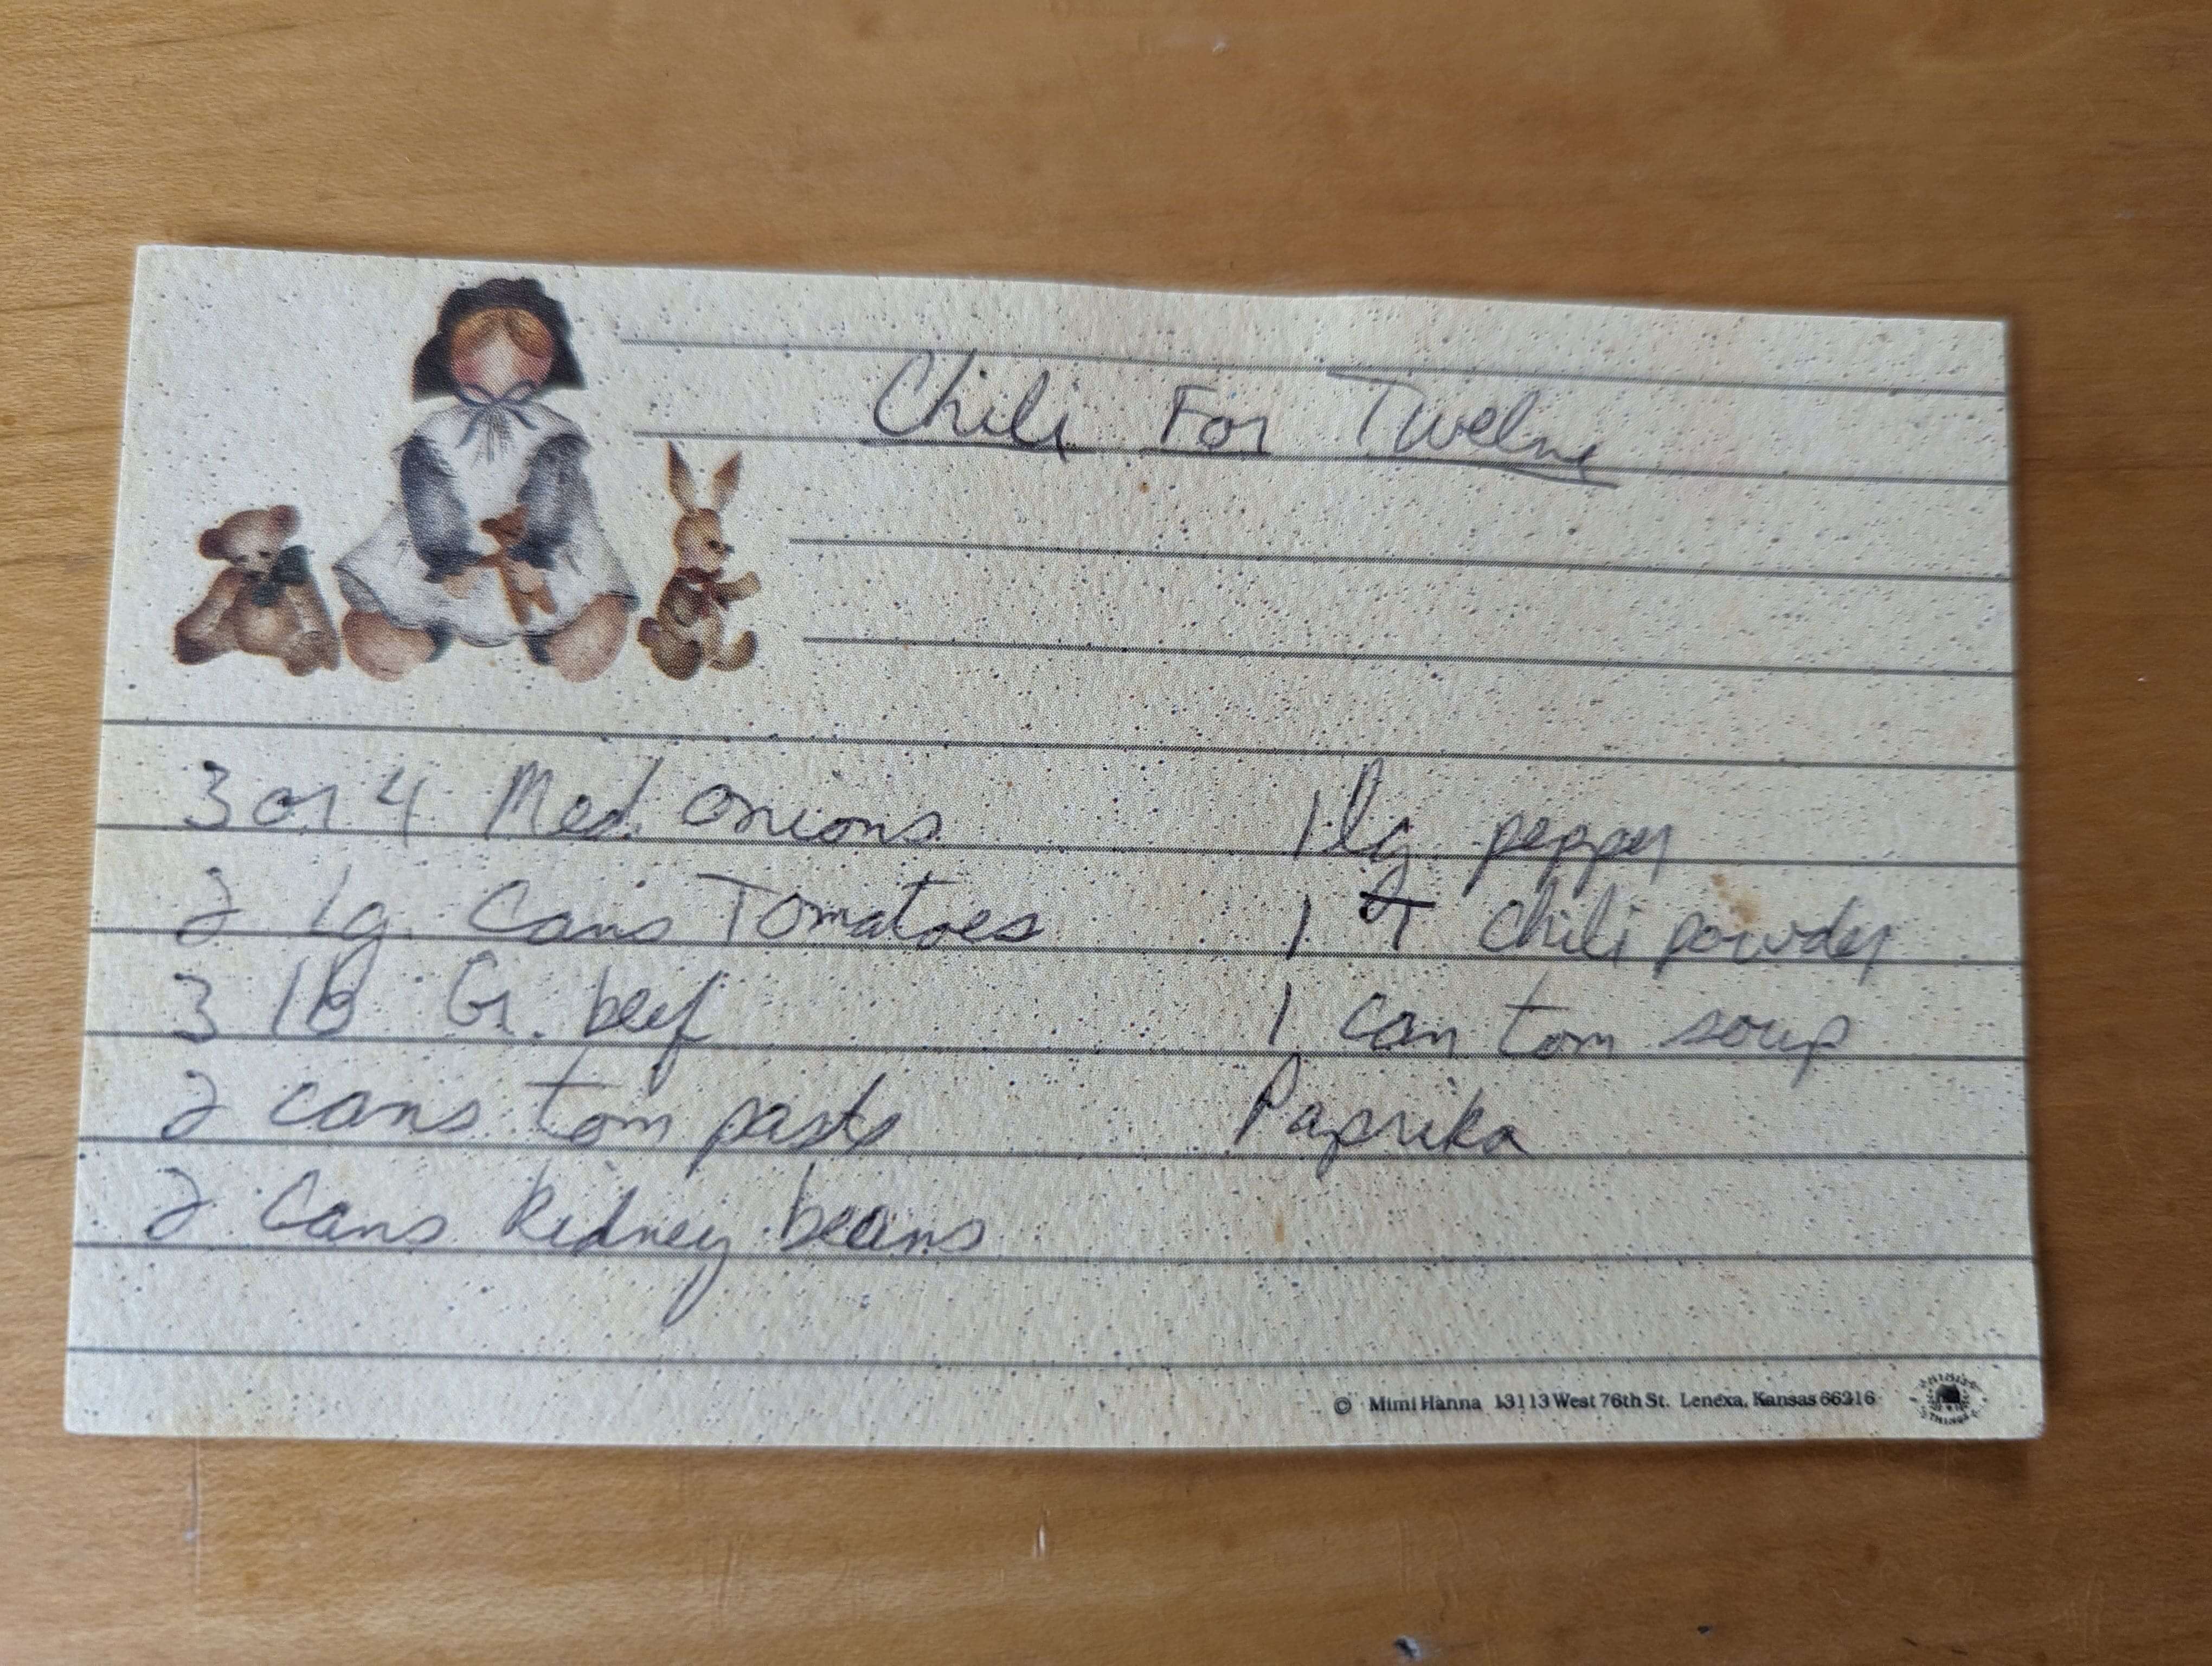 Chili For Twelve
3 or 4 Med. onions
2 lg. Cans Tomatoes
3 lb Gr. beef
2 cans tom paste
2 Cans Kidney beans
1 lg. pepper
1 T chili powder
1 can tom soup
Paprika
© Mimi Hanna 13113 West 76th St. Lenexa, Kansas 66216